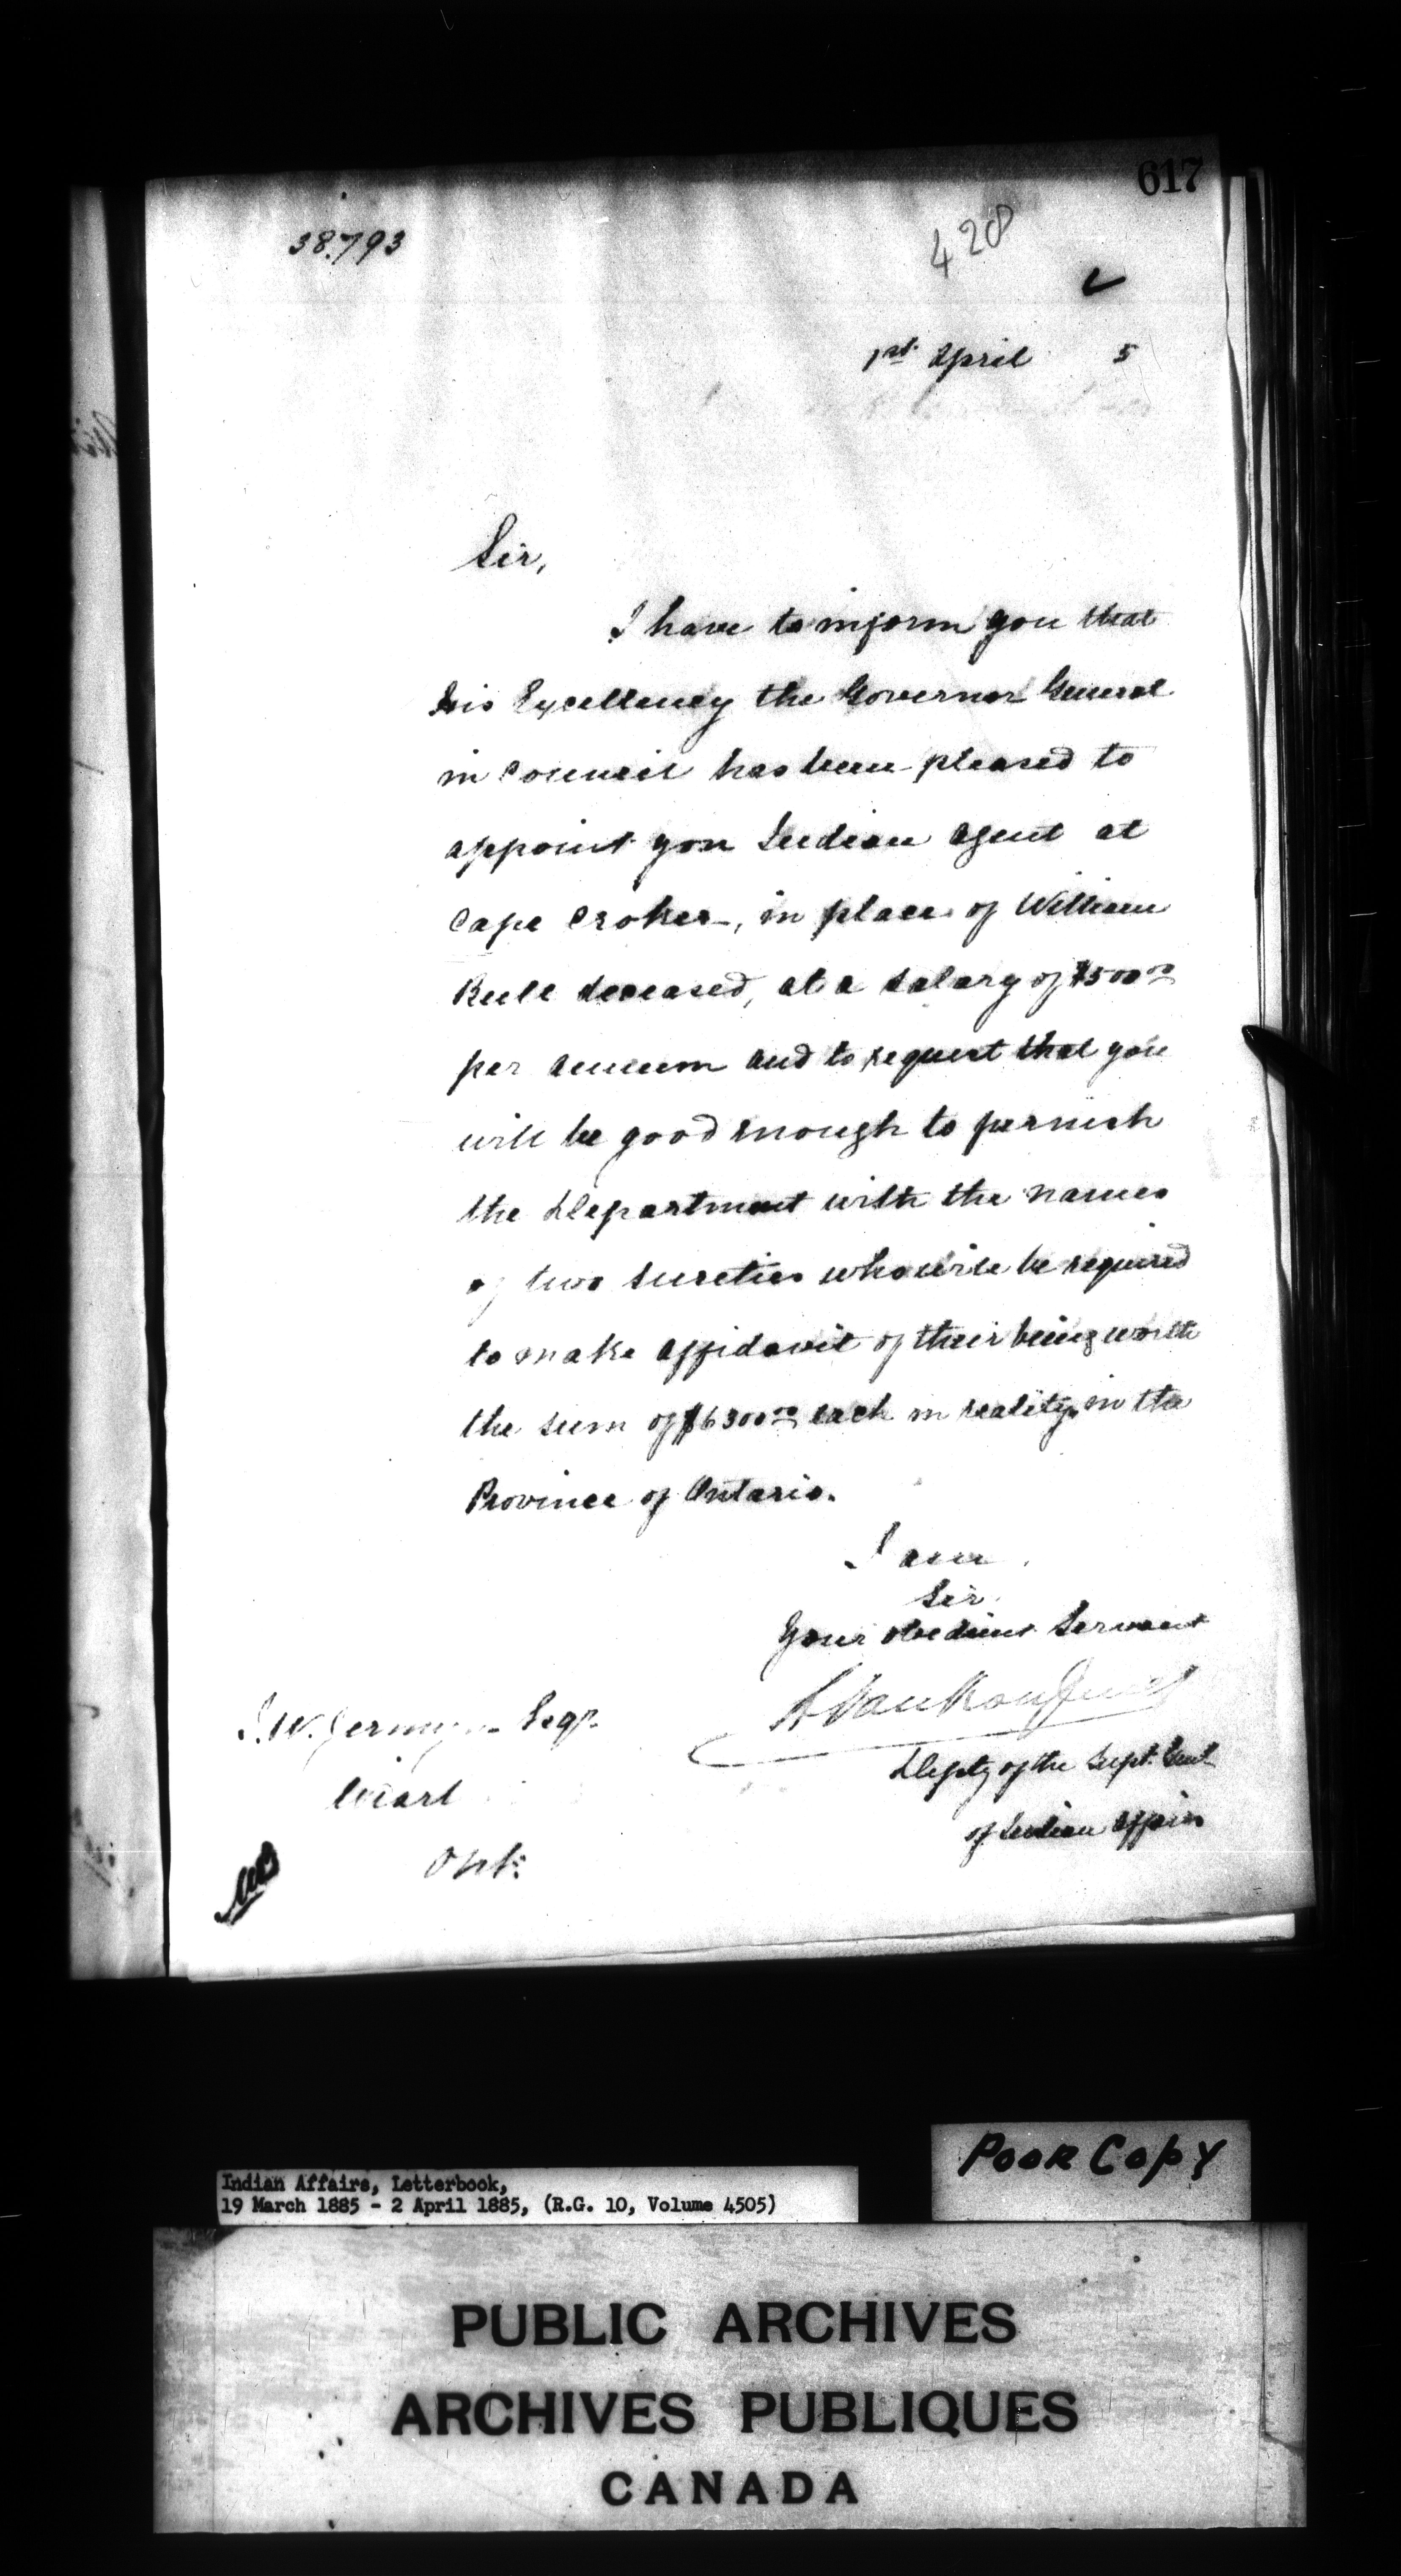 617
38.793
420
1st April 5
Sir,
I have to inform you that
His Excellency the Governor General
in Council has been pleased to
appoint you Indian Agent at
Cape Croker, in place of William
Bull deceased, at a salary of $500.00
per annum and to request that you
will be good enough to furnish
the Department with the names
of two sureties who will be required
to make affidavit of their being worth
the sum of $6300.00 each in reality in the
Province of Ontario.
I am
Sir.
Your obedient Servant
L VanKoughnet
Depty of the Supt. Genl
of Indian Affairs
J.W. Jermyn Esqr.
Wiarton
Ont.
Poor Copy
Indian Affairs, Letterbook,
19 March 1885 - 2 April 1885, (R.G. 10, Volume 4505)
PUBLIC ARCHIVES
ARCHIVES PUBLIQUES
CANADA